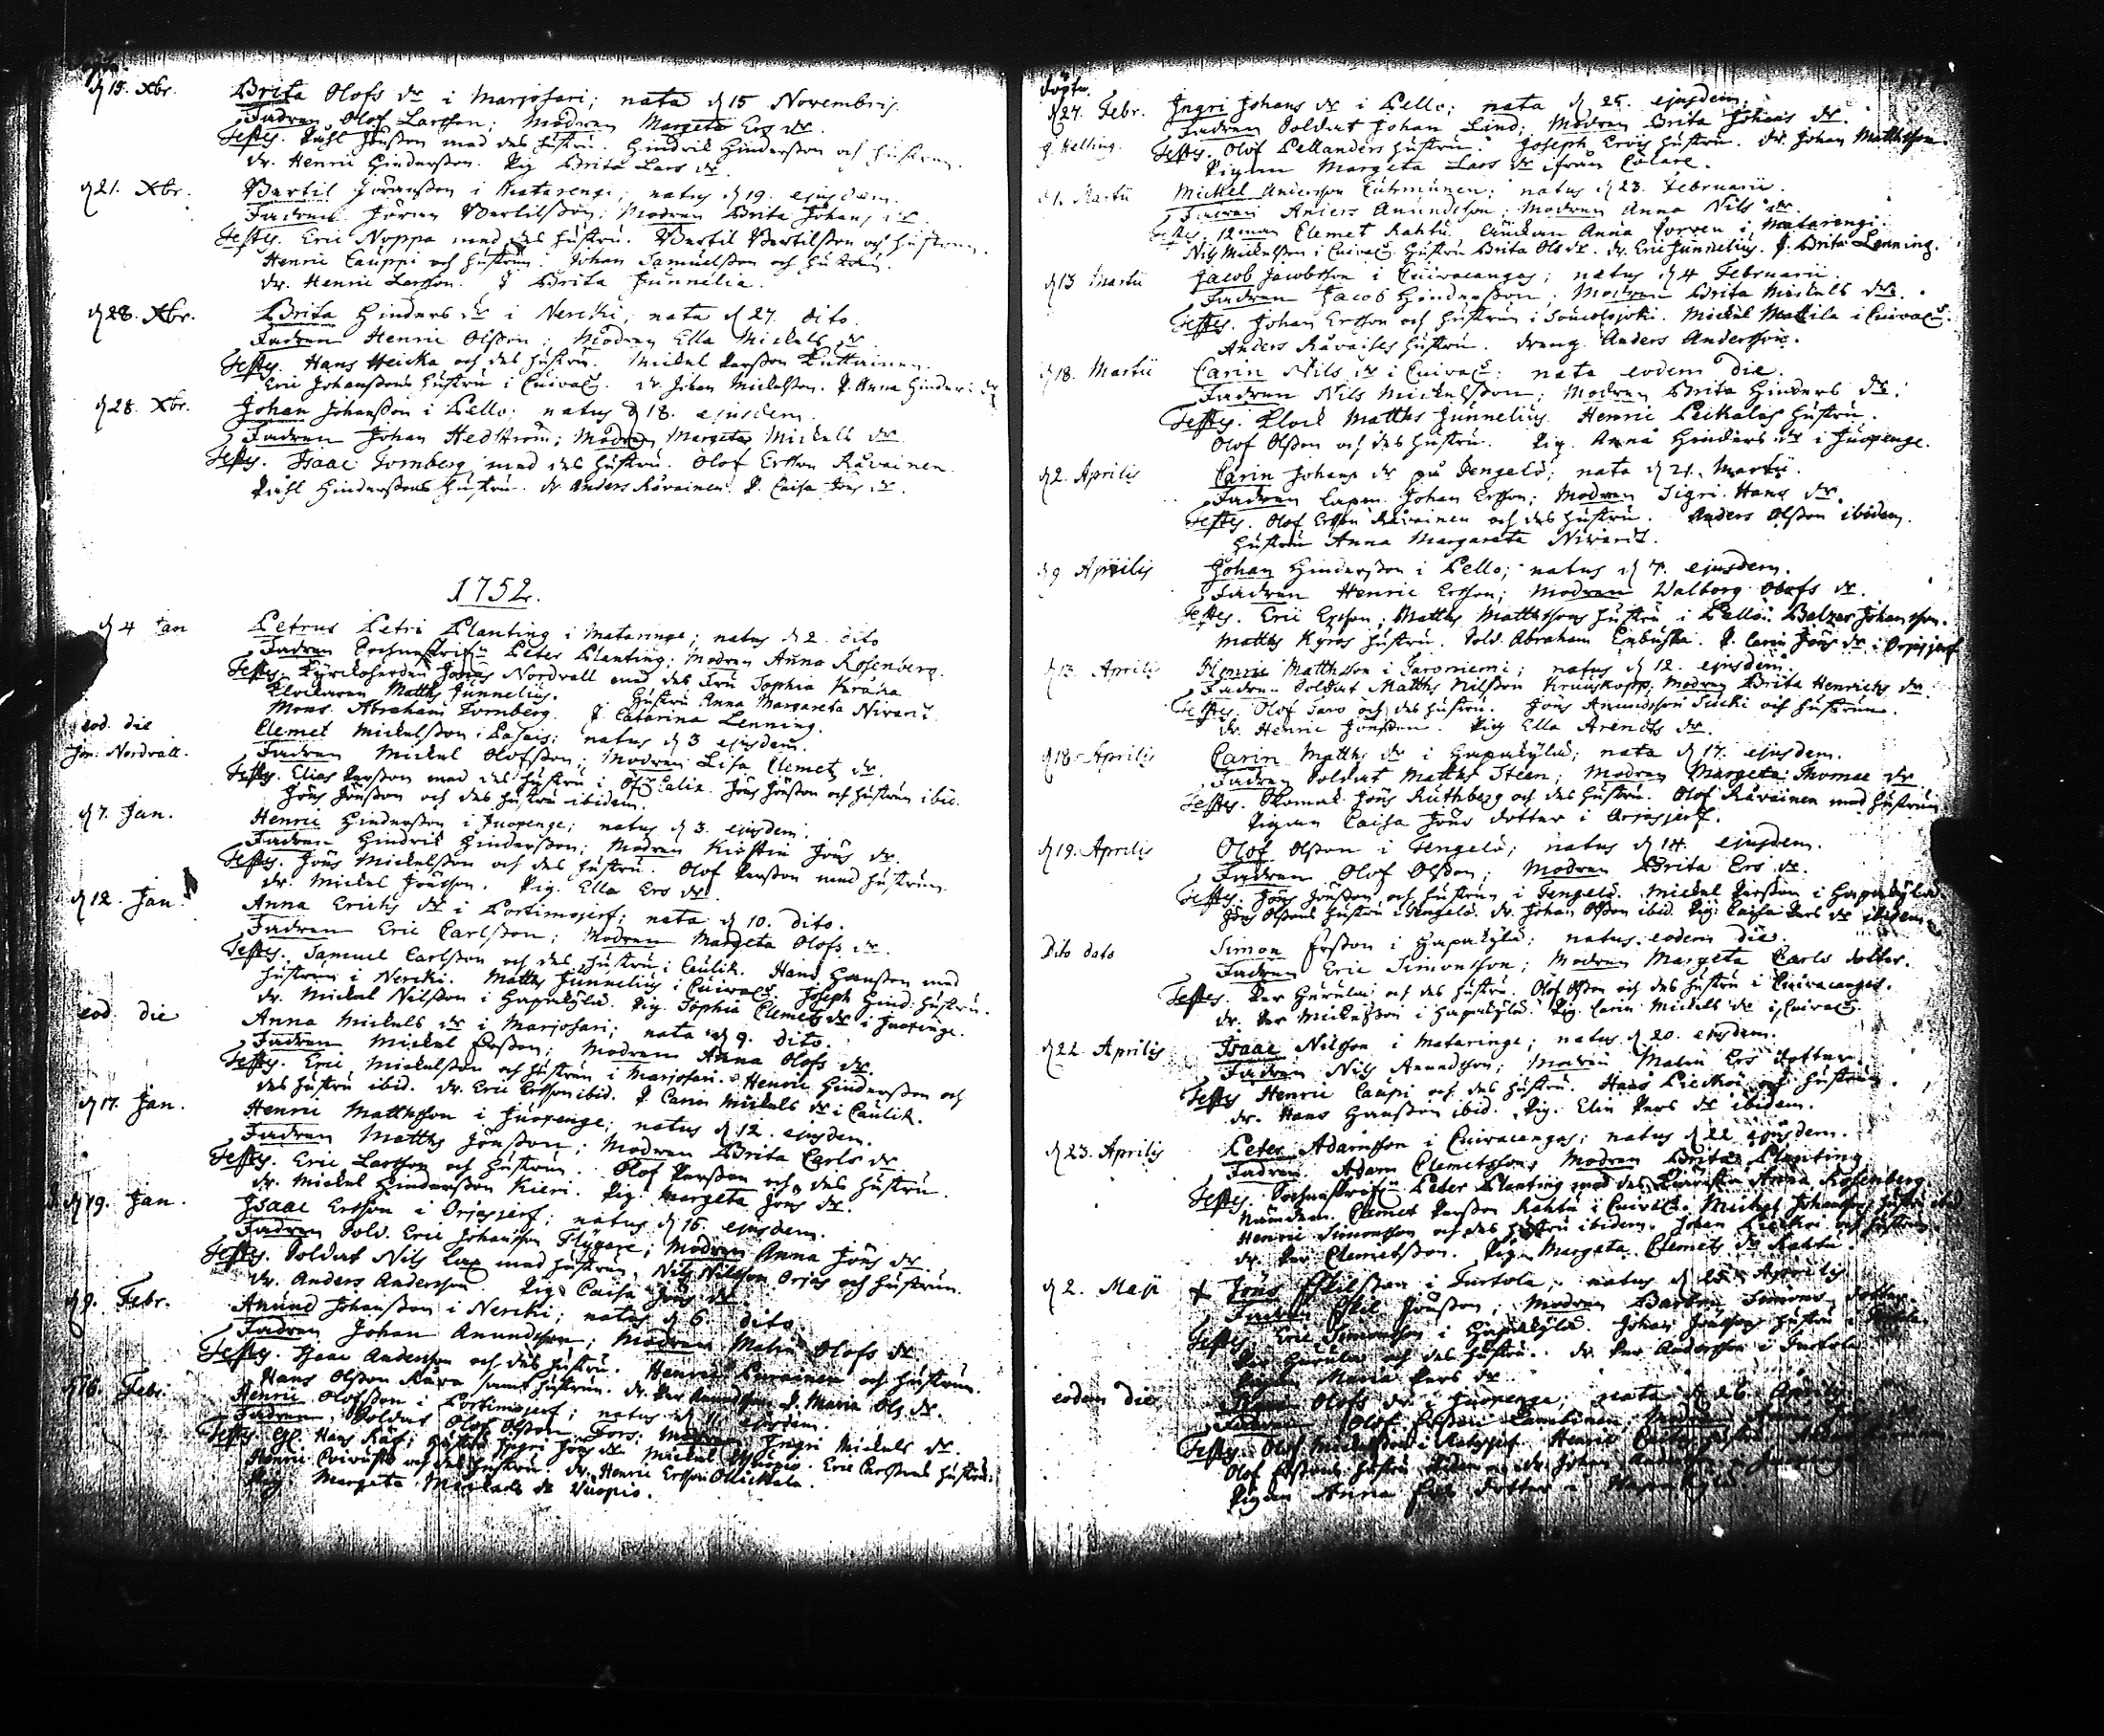 d 15. Xbr. Brita Olofs dr i Marjosari; nata d 15 Novembris.
Fadren Olof Larsson; Modren Margeta Ers dr.
Testes. Påhl Jönsson med des hustru. Hindrik Hindersson och hustrun.
dr. Henric Hindersson. Pig Brita Lars dr.
d 21. Xbr. Bertil Göransson i Matarengi; natus d 19. ejusdem.
Fadren Göran Bertilsson; Modren Brita Johans dr.
Testes. Eric Noppa med des hustru. Bertil Bertilsson och hustrun.
Henric Lauppi och hustrun. Johan Samuelsson och hustrun.
dr. Henric Larsson. P Brita Junnelia.
d 28. Xbr. Brita Hinders dr i Nerkki; nata d 27. dito.
Fadren Henric Olsson; Modren Ella Mickels dr.
Testes. Hans Heicka och des hustru. Mickel Persson Kuttainen.
Eric Johanssons hustru i Cuivac. dr. Johan Mickelsson. P. Anna Hinders dr
d 28. Xbr. Johan Johansson i Pello; natus d 18. ejusdem.
Fadren Johan Hedström; Modren Margeta Mickels dr.
Testes. Isaac Fornberg med des hustru. Olof Ersson Råvainen.
Påhl Hinderssons hustru. dr Anders Råvainen. P. Caisa Jöns dr.
1752.
d 4 Jan Petrus Petri Planting i Mataringe; natus d 2. dito
Fadren Peter Planting; Modren Anna Rosenberg.
Testes. Kyrckoherden Jonas Nordvall med des Fru Sophia
Klockaren Matths Junnelius. Hustru Anna Margareta
Mons. Abraham Fornberg. J. Catarina Lenning.
eod. die Clemet Mickelsson i; natus d 3 ejusdem.
Jon: Nordvall. Fadren Mickel Olofsson; Modren Lisa Clemets dr.
Testes. Elias Persson med des hustru i. Jöns Jönsson och hustrun ibid.
Jöns Jönsson och des hustru ibidem.
d 7. Jan. Henric Hindersson i Juopenge; natus d 3. ejusdem.
Fadren Hindrik Hindersson; Modren Kirstin Jöns dr.
Testes. Jöns Mickelsson och des hustru. Olof Persson med hustrun.
dr. Mickel Jönsson. Pig. Ella Ers dr.
d 12. Jan. Anna Erichs dr i Portimojerf; nata d 10. dito.
Fadren Eric Carlsson; Modren Margeta Olofs dr.
Testes. Samuel Carlsson och des hustru i Caulir. Hans Hansson med
hustrun i Nerkki. Matths Junnelius i Cuivac. Joseph Hind: hustru.
dr. Mickel Nilsson i Hapakylä. Pig. Sophia Clemets dr i Juopenge.
eod die Anna Mickels dr i Marjosari; nata d 9. dito.
Fadren Mickel Ersson; Modren Anna Olofs dr.
Testes. Eric Mickelsson och hustrun i Marjosari. Henric Hindersson och
des hustru ibid. dr. Eric Ersson ibid. P. Carin Mickels dr i Caulir.
d 17. Jan. Henric Matthsson i Juopenge; natus d 12. ejusdem.
Fadren Matths Jönsson; Modren Brita Carls dr.
Testes. Eric Larsson och hustrun. Olof Persson och des hustru.
dr. Mickel Hindersson Kieri. Pig. Margeta Jöns dr.
d 19. Jan. Isaac Ersson i Orjasjerf; natus d 16. ejusdem.
Fadren Sold. Eric Johansson Flygare; Modren Anna Jöns dr.
Testes. Soldat Nils Lax med hustrun. Nils Nilsson Orjas och hustrun.
dr. Anders Andersson. Pig Caisa Jöns dr
d 9. Febr. Anund Johansson i Nerkki; natus d 6. dito.
Fadren Johan Anundsson; Modren Malin Olofs dr.
Testes. Isaac Andersson och des hustru. Henric och hustrun.
Hans Olsson samt hustrun. dr. Per Anundsson P. Maria Ols dr.
d 16. Febr. Henric Olofsson i Portimojerf; natus d 11 ejusdem.
Fadren Soldat Olof Olsson Fors; Modren Ingri Mickels dr.
Testes. Hans Räf; hustru Ingri Jöns dr. Mickel Wuopio. Eric Carlssons hustru.
Henric och des hustru. dr. Henric Ersson Ollickala.
Pig. Margeta Mickels dr Vuopio.
döpte.
d 27. Febr. Ingri Johans dr i Pello; nata d 25. ejusdem.
J. Helling. Fadren Soldat Johan Lind; Modren Brita Johans dr.
Testes. Olof Pellanders hustru. Joseph Ervis hustru. dr. Johan Matthsson.
Pigan Margeta Lars dr ifrån Colare.
d 1. Martii Mickel Andersson; natus d 23. Februarii.
Fadren Anders Anundsson. Modren Anna Nils dr.
Testes. 12man Clemet Rahtu. Enckan Anna i Matarengi.
Nils Mickelsson i Cuivac. Hustru Brita Ols dr. dr. Eric Junnelius. J. Brita Lenning.
d 13 Martii Jacob Jacobsson i Cuivacangas; natus d 4 Februarii.
Fadren Jacob Hindersson; Modren Brita Mickels dr.
Testes. Johan Ersson och hustrun i. Mickel Mattila i Cuivac.
Anders Råvaises hustru. dreng. Anders Andersson.
d 18. Martii Carin Nils dr i Cuivac; nata eodem die.
Fadren Nils Mickelsson; Modren Brita Hinders dr.
Testes. Klock Matths Junnelius. Henric Peikalas hustru.
Olof Olsson och des hustru. Pig. Anna Hinders dr i Juopenge.
d 2. Aprilis Carin Johans dr på Tengelö; nata d 21. Martii.
Fadren Capm. Johan Ersson; Modren Sigri Hans dr.
Testes. Olof Ersson Råvainen och des hustru. Anders Olsson ibidem.
Hustru Anna Margareta.
d 9 Aprilis Johan Hindersson i Pello; natus d 7. ejusdem.
Fadren Henric Ersson; Modren Walborg Olofs dr.
Testes. Eric Ersson; Matths Matthssons hustru i Pello. Balzar Johansson.
Matths Kyrös hustru. Sold. Abraham Enbuska. P. Carin Jöns dr. i Orjasjerf
d 13. Aprilis Henric Matthsson i Jaroniemi; natus d 12. ejusdem.
Fadren Soldat Matths Nilsson Kruuskopp; Modren Brita Henrichs dr.
Testes. Olof Jaro och des hustru. Jöns Anundsson och hustrun.
dr. Henric Jönsson. Pig Ella Arendts dr.
d 18. Aprilis Carin Matths dr i Hapakylä; nata d 17. ejusdem.
Fadren Soldat Matths Steen; Modren Margeta Thomae dr
Testes. Skomak. Jöns Ruthberg och des hustru. Olof Råvainen med hustrun
Pigan Caisa Jöns dotter i Orjasjerf.
d 19. Aprilis Olof Olsson i Tengelö; natus d 14. ejusdem.
Fadren Olof Olsson; Modren Brita Ers dr.
Testes. Jöns Jönsson och hustrun i Tengelö. Mickel Persson i Hapakylä
Jöns Olssons hustru i Tengelö. dr. Johan Olsson ibid. Pig: Caisa Pers dr ibidem.
Dito dato Simon Ersson i Hapakylä; natus eodem die.
Fadren Eric Simonsson; Modren Margeta Carls dotter.
Testes. Per Hurula och des hustru. Olof Olsson och des hustru i Cuivacangas.
dr. Per Mickelsson i Hapakylä. Pig. Carin Mickels dr i Cuivac.
d 22. Aprilis Isaac Nilsson i Mataringe; natus d 20. ejusdem.
Fadren Nils Anundsson; Modren Malin Ers dotter.
Testes Henric Caupi och des hustru. Hans och hustrun.
dr. Hans Hansson ibid. Pig. Elin Pers dr ibidem.
d 23. Aprilis Peter Adamsson i Cuivacangas; natus d 22 ejusdem.
Fadren Adam Clemetsson; Modren Brita Planting
Testes. Peter Planting med des Anna Rosenberg.
Nämdem. Clemet Persson Rahtu i Cuivac. Mickel Johanssons hustru ibid.
Henric Simonsson och des hustru ibidem. Johan och hustrun.
dr. Per Clemetsson. Pig. Margeta Clemets dr Rahtu.
d 2. Maji + Jöns Eskilsson i Turtola; natus d 25. Aprilis
Fadren Eskil Jönsson; Modren Barbro Simons dotter.
Testes. Eric Simonsson i Hapakylä. Johan Jönssons hustru i Turtola.
Per Hurula och des hustru. dr. Per Andersson i Turtola.
Pigan Maria Pers dr.
eodem die Olofs dr i Juopenge; nata d 26. Aprilis
Fadren Olof Ersson; Modren
Testes. Olof Mickelsson i. Henric hustru.
Olof Erssons hustru ibidem. dr. Johan Andersson i Juopenge
Pigan Anna Ers dotter i Hapakylä.